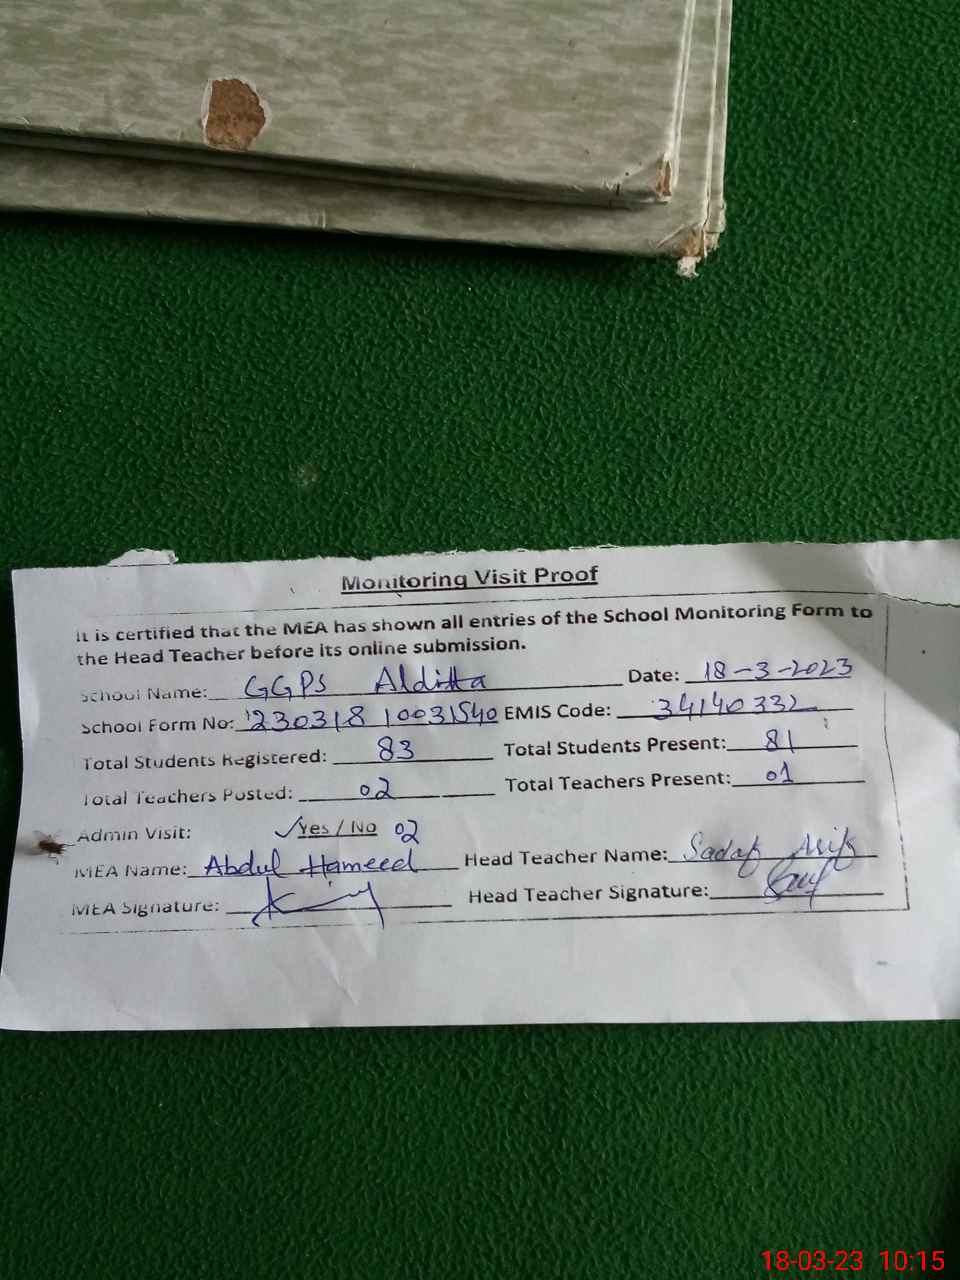 Monitoring Visit Proof
It is certified that the MEA has shown all entries of the School Monitoring Form to
the Head Teacher before its online submission.
School Name: GGPS Alditta Date: 18-3-2023
School Form No: 230318 10031540 EMIS Code: 34140332
Total Students Registered: 83 Total Students Present: 81
Total Teachers Posted: 02 Total Teachers Present: 01
Admin Visit: ✓Yes / No 02
MEA Name: Abdul Hameed Head Teacher Name: Sadaf Arif
MEA Signature: Head Teacher Signature:
18-03-23 10:15